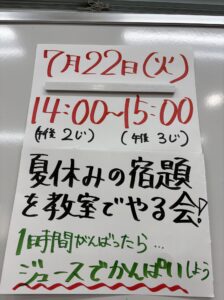 7月22日(火)
14:00~15:00
(午後2じ) (午後3じ)
夏休みの宿題
を教室でやる会!
1時間がんばったら...
ジュースでかんぱいしよう